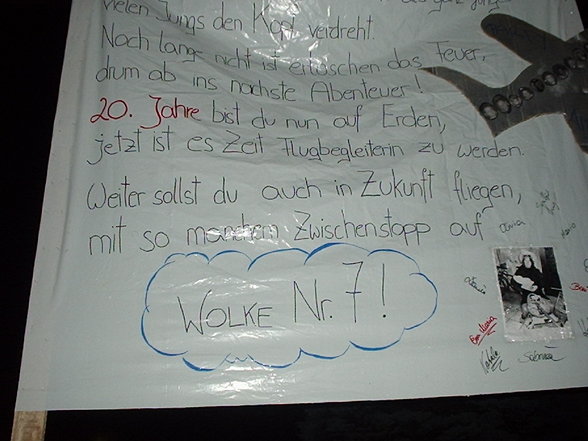 vielen Jungs den Kopf verdreht.
Noch lange nicht ist erloschen das Feuer,
drum ab ins nächste Abenteuer!
20. Jahre bist du nun auf Erden,
jetzt ist es Zeit Flugbegleiterin zu werden.
Weiter sollst du auch in Zukunft fliegen,
mit so manchem Zwischenstopp auf
WOLKE Nr. 7!
Sabrina